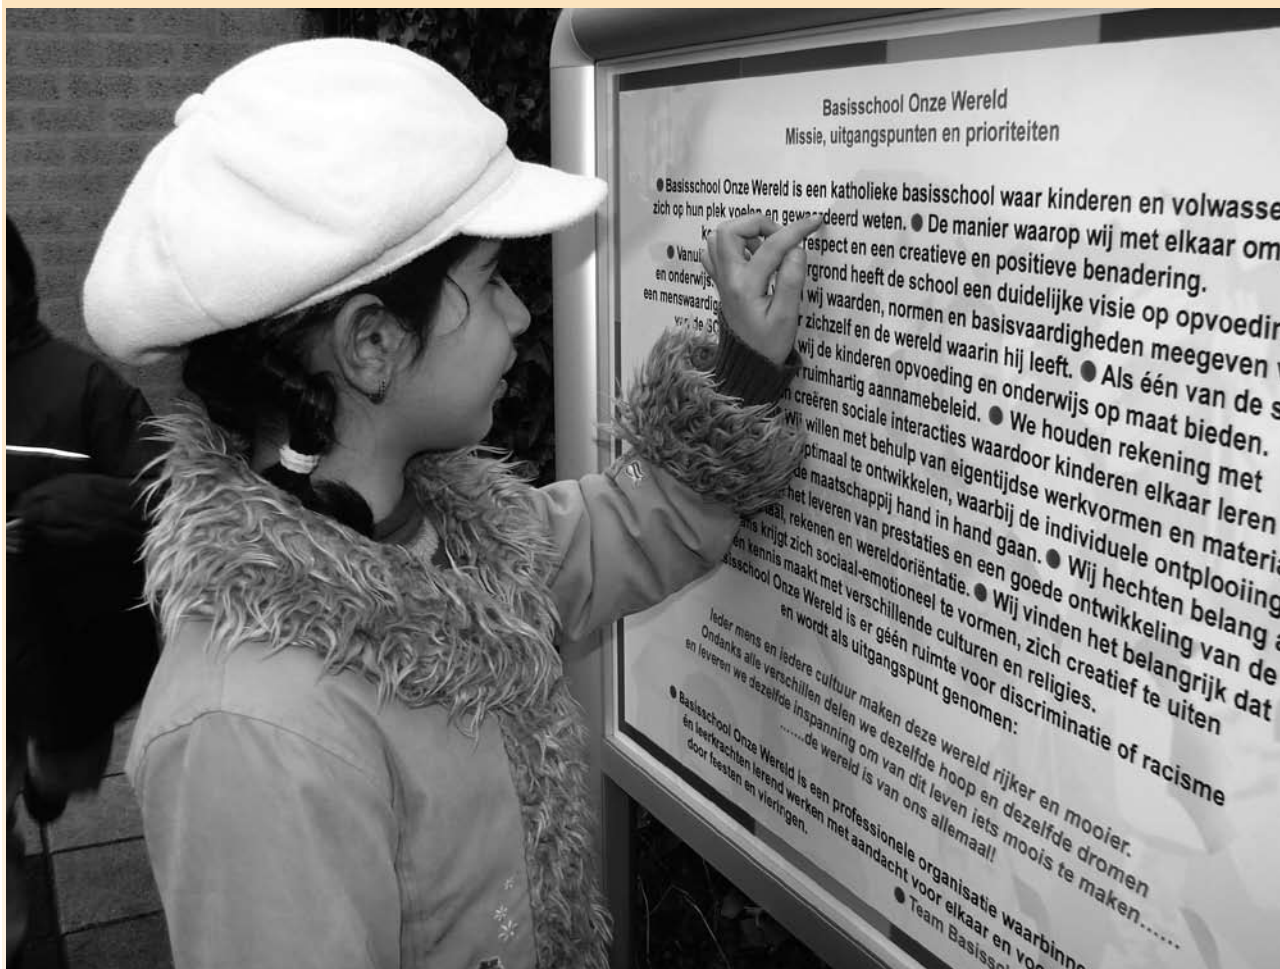 Basisschool Onze Wereld
Missie, uitgangspunten en prioriteiten
● Basisschool Onze Wereld is een katholieke basisschool waar kinderen en volwasse
zich op hun plek voelen en gewaardeerd weten. ● De manier waarop wij met elkaar om
respect en een creatieve en positieve benadering.
● Vanui rgrond heeft de school een duidelijke visie op opvoedin
en onderwijs. wij waarden, normen en basisvaardigheden meegeven v
een menswaardig r zichzelf en de wereld waarin hij leeft. ● Als één van de s
van de wij de kinderen opvoeding en onderwijs op maat bieden.
ruimhartig aannamebeleid. ● We houden rekening met
creëren sociale interacties waardoor kinderen elkaar leren
Wij willen met behulp van eigentijdse werkvormen en materia
optimaal te ontwikkelen, waarbij de individuele ontplooiing
de maatschappij hand in hand gaan. ● Wij hechten belang a
het leveren van prestaties en een goede ontwikkeling van de
taal, rekenen en wereldoriëntatie. ● Wij vinden het belangrijk dat
ans krijgt zich sociaal-emotioneel te vormen, zich creatief te uiten
en kennis maakt met verschillende culturen en religies.
sisschool Onze Wereld is er géén ruimte voor discriminatie of racisme
en wordt als uitgangspunt genomen:
Ieder mens en iedere cultuur maken deze wereld rijker en mooier.
Ondanks alle verschillen delen we dezelfde hoop en dezelfde dromen
en leveren we dezelfde inspanning om van dit leven iets moois te maken.......
......de wereld is van ons allemaal!
● Basisschool Onze Wereld is een professionele organisatie waarbinne
én leerkrachten lerend werken met aandacht voor elkaar en voo
door feesten en vieringen.
● Team Basissc